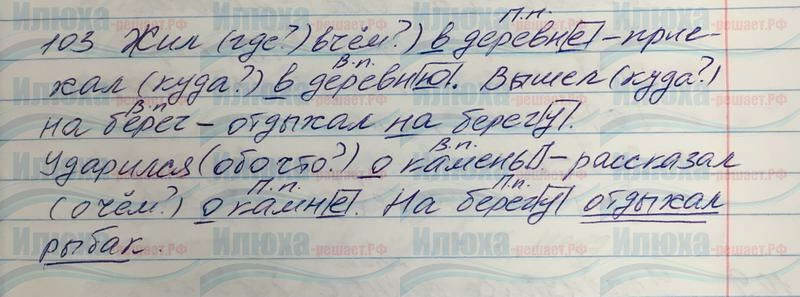 П.п.
103 Жил (где?) в чём?) в деревне – прие-
В.п.
хал (куда?) в деревню. Вышел (куда?)
В.п
на берег – отдыхал на берегу.
В.п.
Ударился (обо что?) о камень – рассказал
П.п. П.п.
(о чём?) о камне. На берегу отдыхал
рыбак.
Илюха-решает.РФ